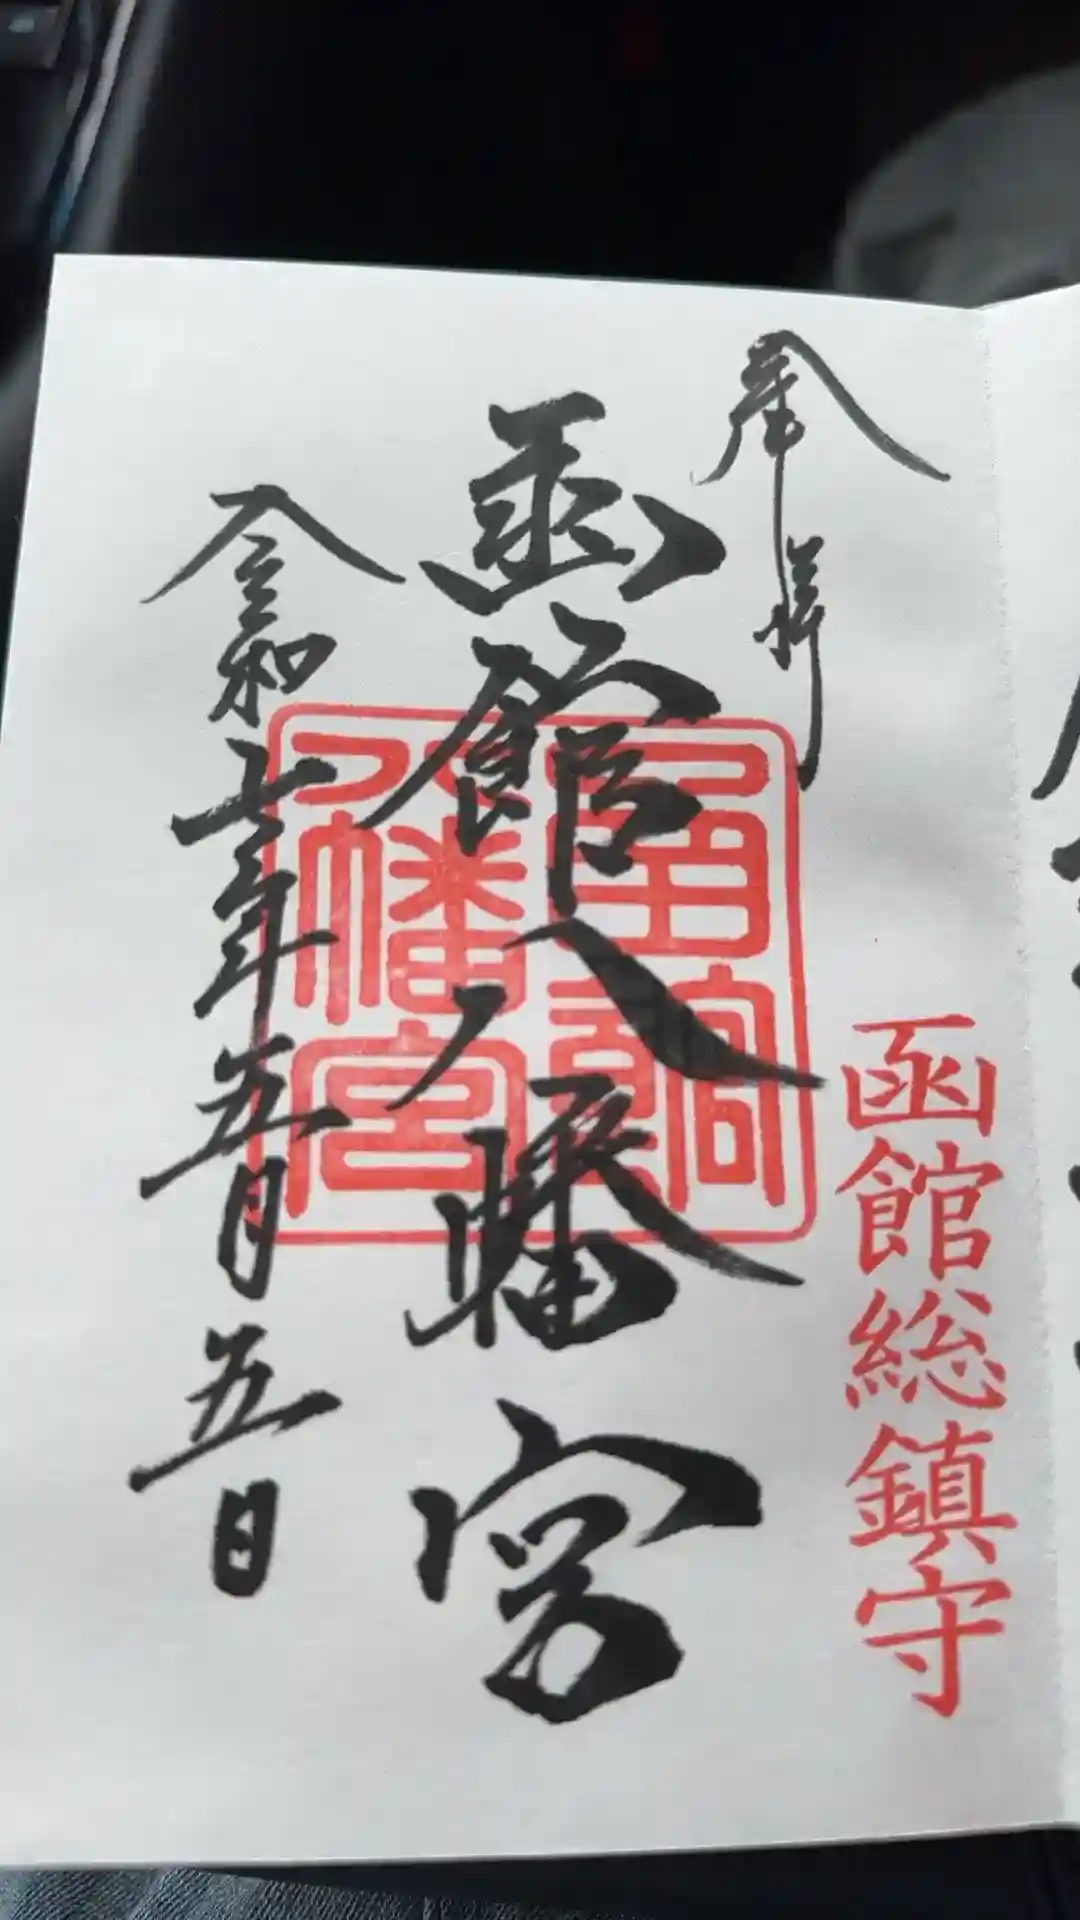 奉拝
函館総鎮守
函館八幡宮
函館
八幡宮
令和七年五月五日